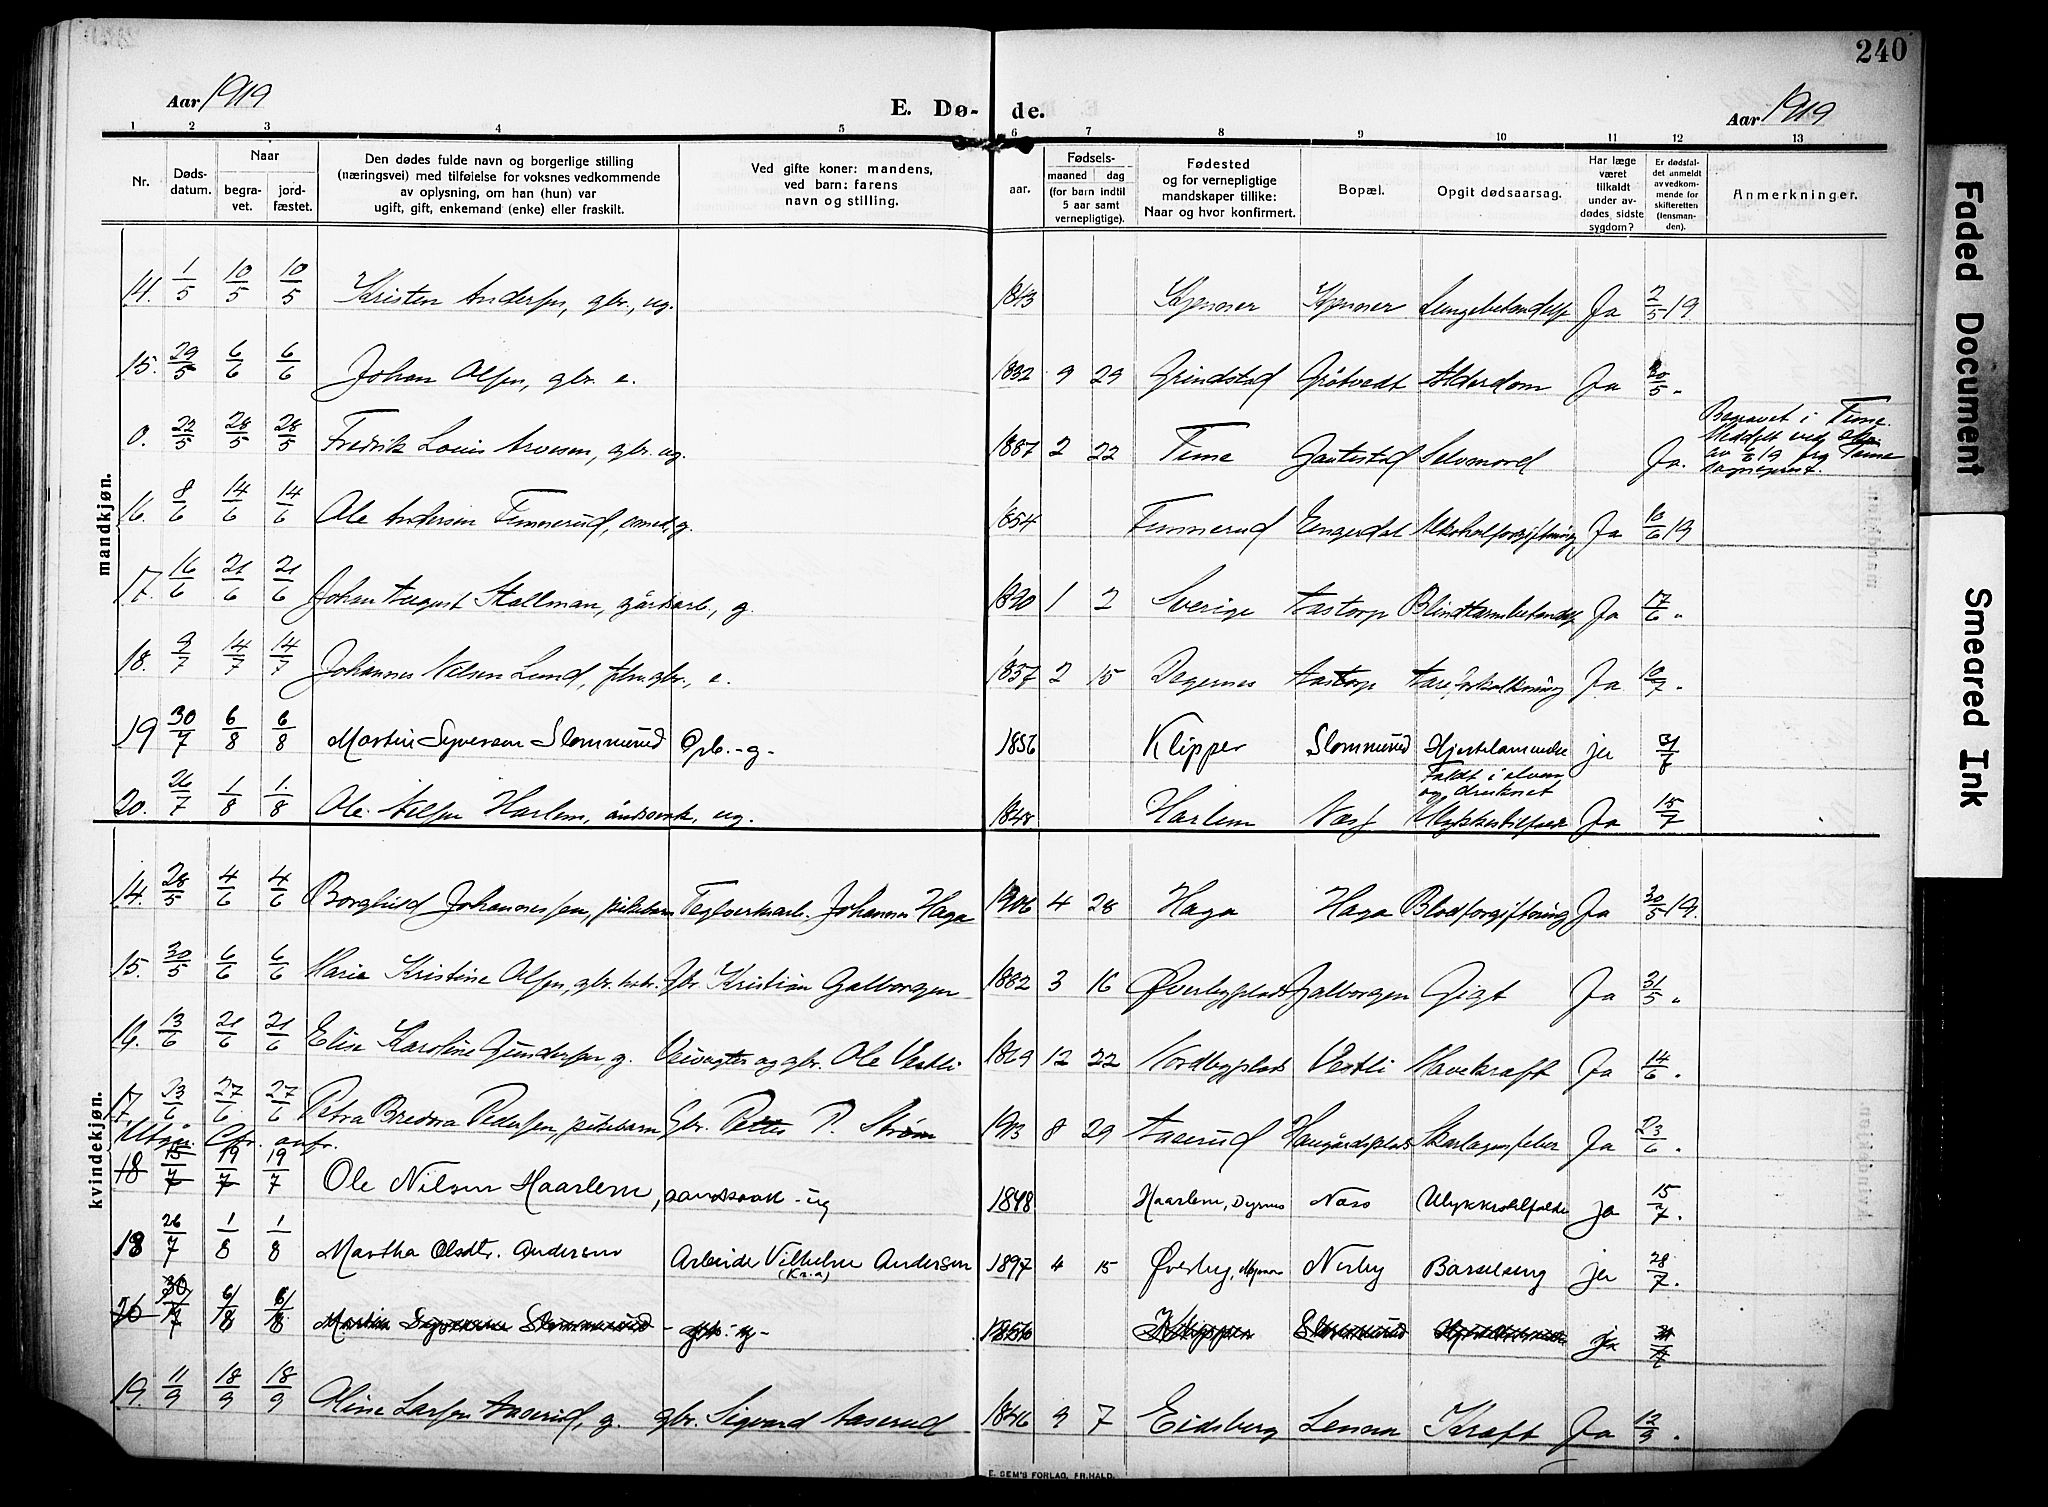 240
Aar 1919
E. Dø- de.
Aar 1919
1 2 3 4 5 6 7 8 9 10 11 12 13
Nr.
Døds-
datum.
Naar
begra-
vet.
jord-
fæstet.
Den dødes fulde navn og borgerlige stilling
(næringsvei) med tilføielse for voksnes vedkommende
av oplysning, om han (hun) var
ugift, gift, enkemand (enke) eller fraskilt.
Ved gifte koner: mandens,
ved barn: farens
navn og stilling.
aar.
Fødsels-
maaned dag
(for barn indtil
5 aar samt
vernepligtige).
Fødested
og for vernepligtige
mandskaper tillike:
Naar og hvor konfirmert.
Bopæl.
Opgit dødsaarsag.
Har læge
været
tilkaldt
under av-
dødes, sidste
sygdom?
Er dødsfal-
det anmeldt
av vedkom-
mende for
skifteretten
(lensman-
den).
Anmerkninger.
mandkjøn.
14. 1/5 10/5 10/5 Kristen Andersen, gbr., ug. 1843 Lungebetændelse Ja 2/5 19
15. 29/5 6/6 6/6 Johan Olsen, gbr. e. 1832 9 29 Grindstad Grötvedt Alderdom Ja 30/5 "
0. 22/5 28/5 28/5 Fredrik Louis Arvesen, gbr. ug. 1887 2 22 Time Gautestad Selvmord Ja. Begravet i Time.
Meddelt ved
av 6/6 19 fra Time
sogneprest.
16. 8/6 14/6 14/6 Ole Andersen Timmerud, g. 1854 Timmerud Engerdal Alkoholforgiftning Ja 10/6 19
17. 16/6 21/6 21/6 Johan August Stallman, gårdarb., g. 1 2 Sverige Aastorp Blindtarmbetændelse Ja 17/6 "
18. 9/7 14/7 14/7 Johannes Nilsen Lund, gbr., e. 1837 2 15 Degernes Aastorp Aareforkalkning Ja 10/7 "
19 30/7 6/8 6/8 Martin Syversen Slommerud Gbr. -g- 1856 Klipper Slommerud Hjertelammelse ja 31/7
20. 26/7 1/8 1/8 Ole Nilsen Harlem, åndssvak, ug. 1848 Harlem Næs Faldt i elven
og druknet
Ulykkestilfælde Ja 15/7
kvindekjøn.
14. 28/5 4/6 4/6 Borghild Johannessen, pikebarn Teglverksarb. Johannes Haga 1906 4 28 Haga Haga Blodforgiftning Ja 30/5 19.
15. 30/5 6/6 6/6 Maria Kristine Olsen, gbr. Gbr. Kristian Galborgen 1882 3 16 Øverbyplads Galborgen Gigt Ja 31/5 "
16. 13/6 21/6 21/6 Elise Karoline Gundersen, g. Veivogter og gbr. Ole Vestli 1869 12 22 Nordbyplads Vestli Mavekræft Ja 14/6 "
17. 23/6 27/6 27/6 Petra Bredina Pedersen, pikebarn Gbr. Petter P. Strøm 1913 8 29 Aaserud Haugårdsplads Skarlagensfeber Ja 23/6 "
Utgår. Cfr. ovfr.
18 15/7 19/7 19/7 Ole Nilsen Haarlem, aandssvak - ug 1848 Haarlem, Degernes Næs Ulykkestilfælde ja 15/7.
18 26/7 1/8 1/8 Martha Olsdtr. Andersen Arbeider Vilhelm Andersen
(Kr.a) 1897 4 15 Øverby, Nerby Barselseng ja 28/7.
20 30/7 6/8 6/8 Martin Syversen Slommerud - gbr. - g - 1856 Klipper Slommerud Hjertelammelse ja 31/7
19. 11/9 18/9 18/9 Oline Larsen Aaserud, g. gbr. Sigvard Aaserud 1846 9 7 Eidsberg Lenna Kræft Ja 12/9 "
E. SEM'S FORLAG, FR.HALD.
Faded Document
Smeared Ink